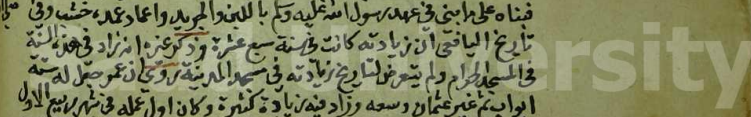 فبناه على ما بنى في عهد رسول الله عليه وسلم باللبن والجريد واعاد عمده خشب وفي
تاريخ اليافعي ان زيادته كانت في سنة سبع عشرة وذكر غيره انه زاد في هذه السنة
في المسجد الحرام ولم يتعرض لتاريخ زيادته في مسجد المدينة وروي ان عمر جعل له ستة
ابواب ثم غيره عثمان ووسعه وزاد فيه زيادة كثيرة وكان اول عمله في شهر ربيع الاول